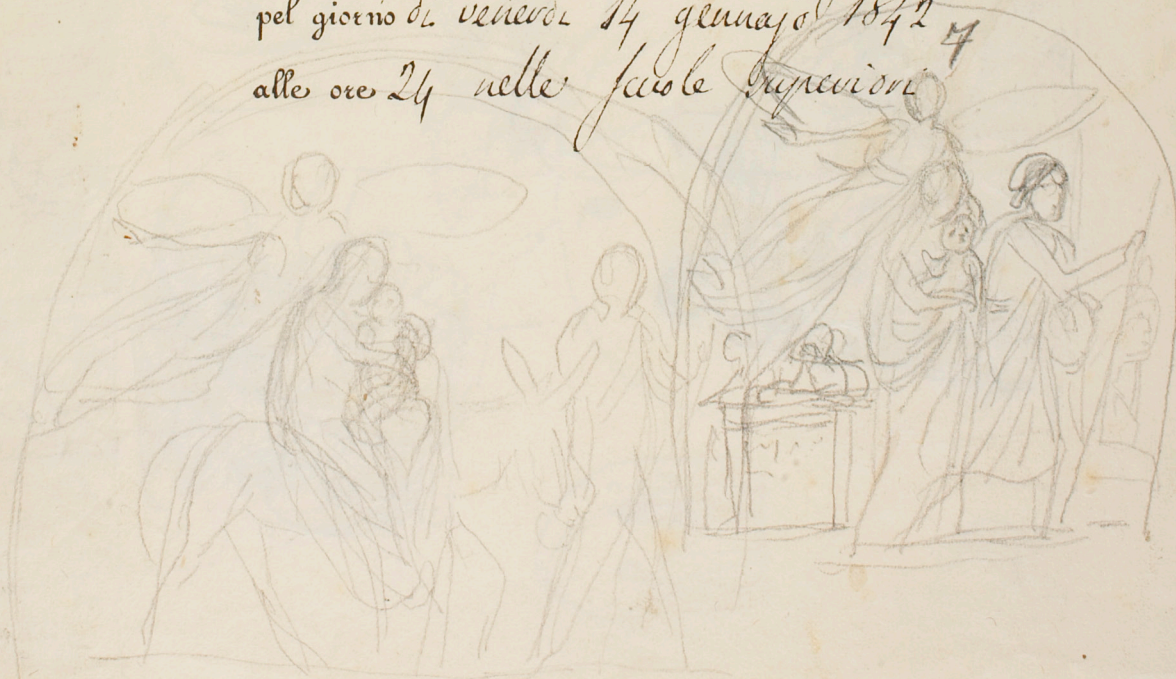 pel giorno di venerdi 14 gennajo 1842
7
alle ore 24 nelle Scuole Superiori